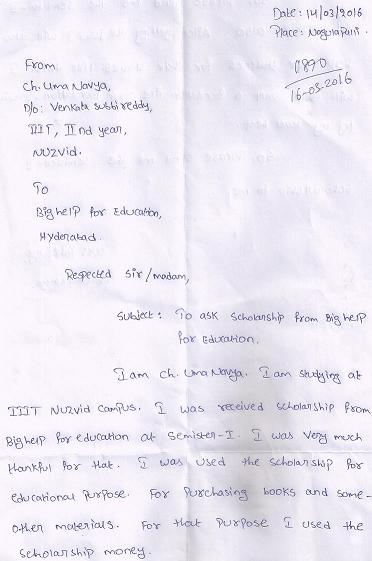 Date: 14/03/2016
Place: Nagulapalli.
From
Ch. Uma Navya,
D/o: Venkata subbi reddy,
IIIT, II nd year,
NUZvid.
0890
16-03-2016
To
Big help for Education,
Hyderabad.
Respected Sir/madam,
Subject: To ask Scholarship from Big help
for Education.
I am ch. Uma Navya. I am studying at
IIIT NUZvid campus. I was received scholarship from
Big help for education at Semister-I. I was very much
thankful for that. I was used the scholarship for
educational purpose. For purchasing books and some-
other materials. For that purpose I used the
scholarship money.